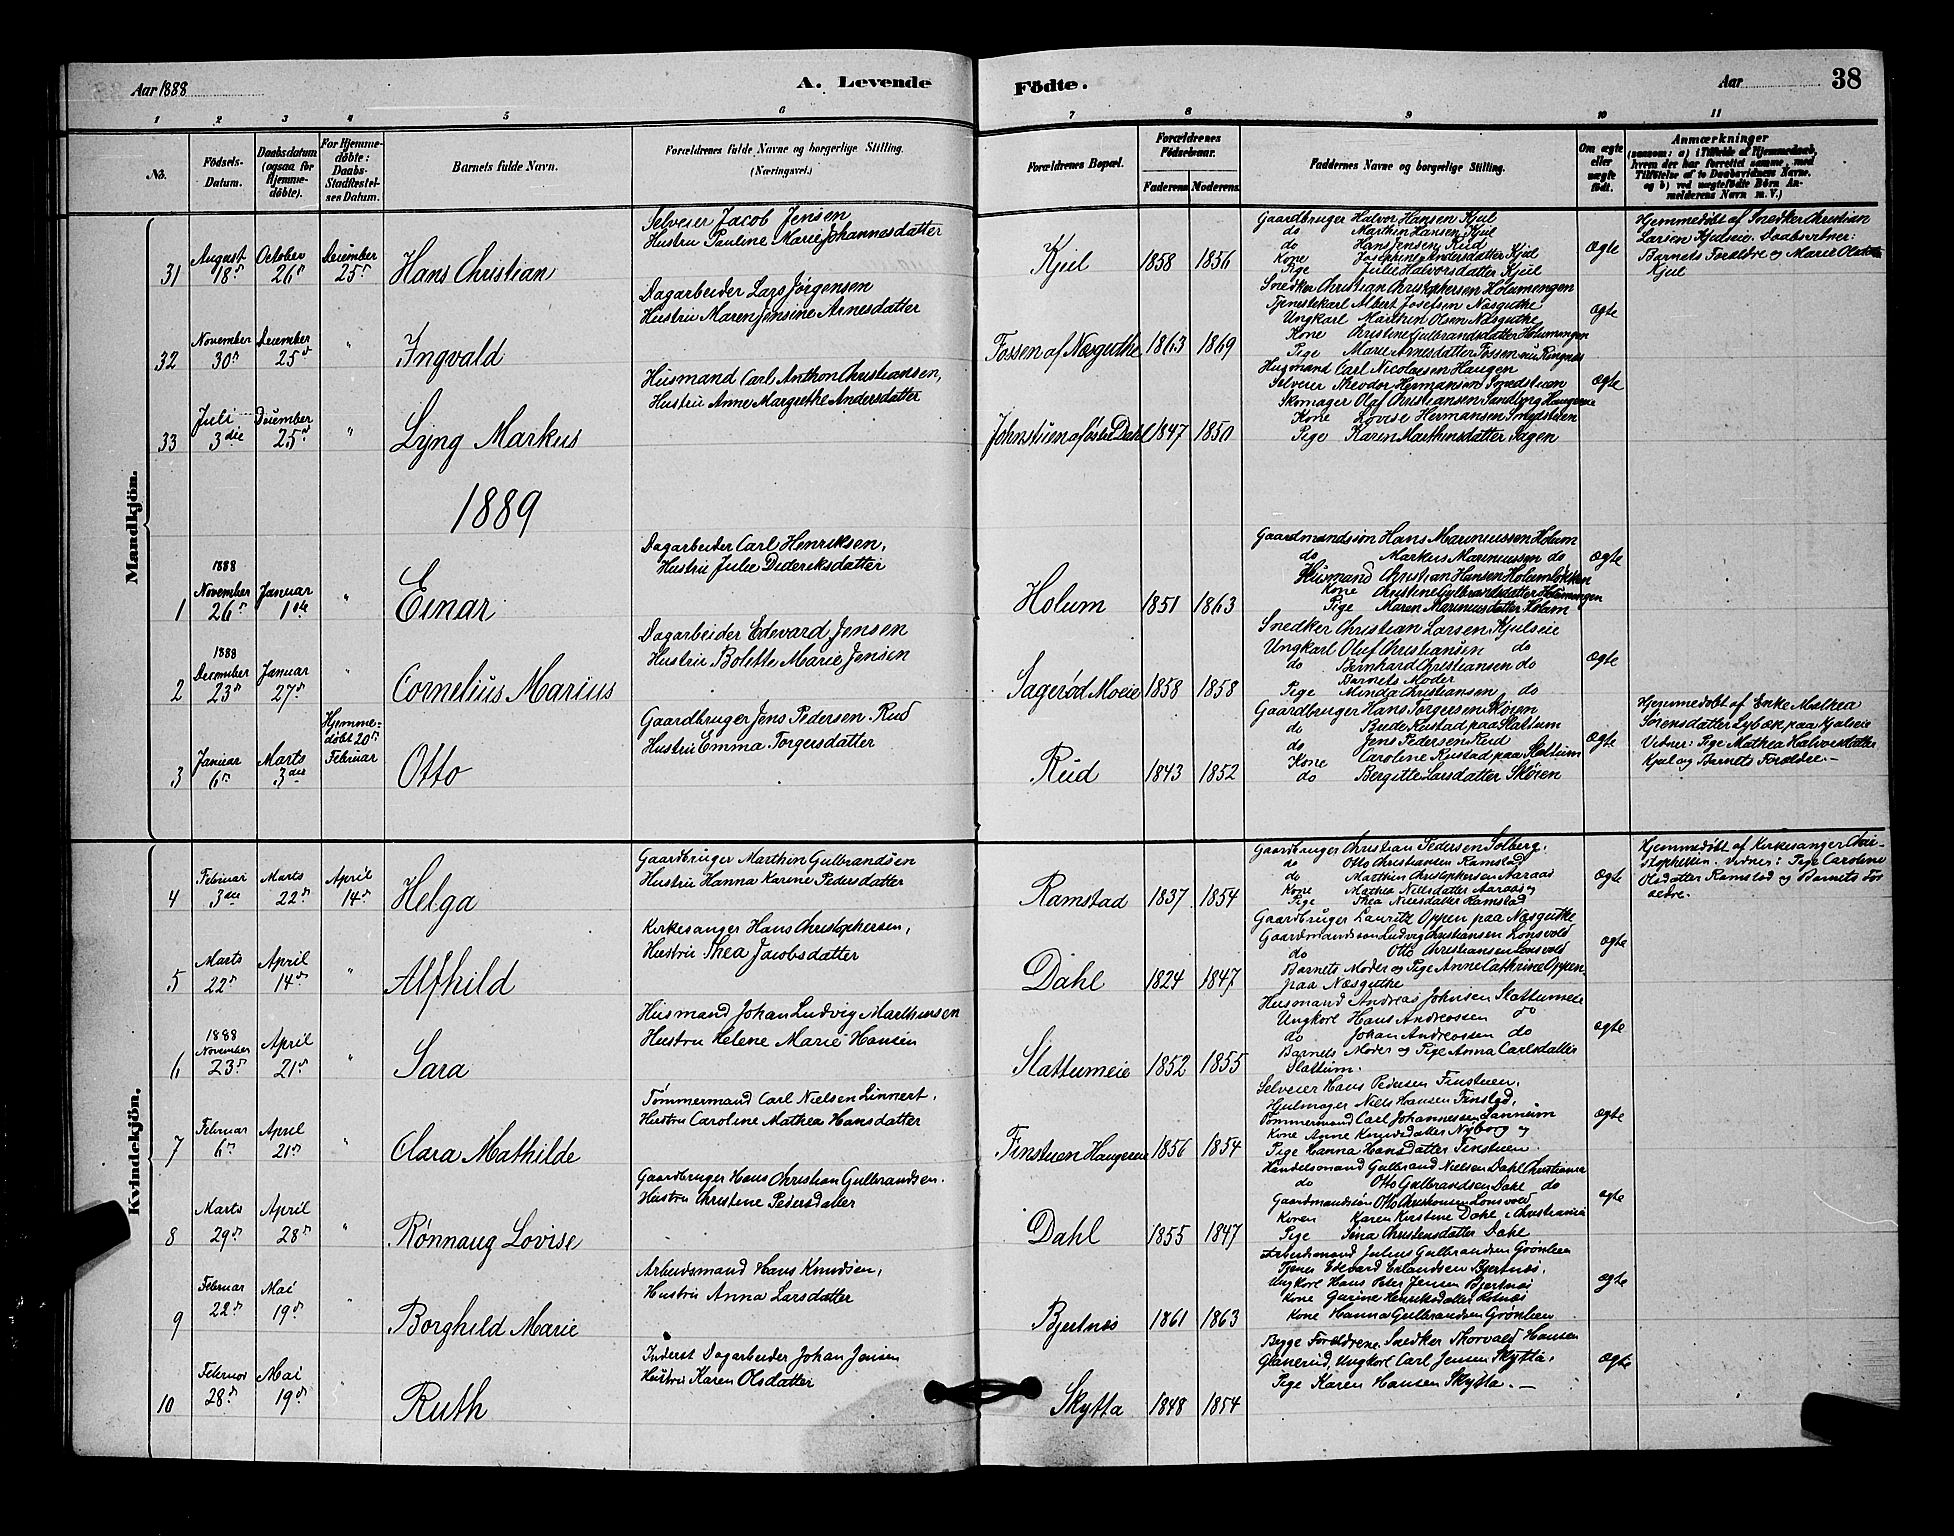 Aar 1888
A. Levende
Födte.
Aar
38
1 2 3 4 5 6 7 8 9 10 11
No.
Födsels-
Datum.
Daabsdatum
(ogsaa för
Hjemme-
döbte).
For Hjemme-
döbte:
Daabs-
Stadfæstel-
ses Datum.
Barnets fulde Navn.
Forældrenes fulde Navne og borgerlige Stilling.
(Næringsvei.)
Forældrenes Bopæl.
Forældrenes
Födselsaar.
Faderens. Moderens.
Faddernes Navne og borgerlige Stilling.
Om ægte
eller
uægte
födt.
Anmærkninger
(saasom: a) i Tilfælde af Hjemmedaab,
hvem der har forrettet samme, med
Tilföielse af to Daabsvidners Navne,
og b) ved uægtefödte Börn An-
melderens Navn m. V.)
Mandkjön.
31
August
18de
October
26de
December
25de
Hans Christian
Selveier Jacob Jensen
Hustru Pauline Marie Johannesdatter
Kjul
1858 1856
Gaardbruger Halvor Hansen Kjul
do Marthin Hansen Kjul
do Hans Jensen Rud
Kone Josephine Andersdatter Kjul
Pige Julie Halvorsdatter Kjul
ægte
Hjemmedøbt af Snedker Christian
Larsen Kjulseie. Daabsvidner:
Barnets Forældre og Marie
Kjul
32
November
30de
December
25de
"
Ingvald
Dagarbeider Lars Jørgensen
Hustru Maren Jensine Arnesdatter
Fossen af Næsguthe
1863 1869
Snedker Christian Christophersen Holumengen
Tjenestekarl Albert Josefsen Næsguthe
Ungkarl Marthin Olsen Næsguthe
Kone Christine Gulbrandsdatter Holumengen
Pige Marie Arnesdatter Fossen
ægte
33
Juli
3die
December
25de
"
Lyng Markus
Husmand Carl Anthon Christiansen,
Hustru Anne Margrethe Andersdatter
Johnstuen af østre Dahl
1847 1850
Husmand Carl Nicolaisen Haugen
Selveier Theodor Hermansen Smedstuen
Skomager Olaf Christiansen
Kone Lovise Hermansen Smedstuen
Pige Karen Marthinsdatter Sagen
ægte
1889
1
1888
November
26de
Januar
1ste
"
Einar
Dagarbeider Carl Henriksen,
Hustru Julie Dideriksdatter
Holum
1851 1863
Gaardmandssøn Hans Marinussen Holum
do Markus Marinussen do
Husmand Christian Hansen Holumløkken
Kone Christine Gulbrandsdatter Holumengen
Pige Maren Marinusdatter Holum
ægte
2
1888
December
23de
Januar
27de
"
Cornelius Marius
Dagarbeider Edevard Jensen
Hustru Bolette Marie Jensen
Sagerød Moeie
1858 1858
Snedker Christian Larsen Kjulseie
Ungkarl Oluf Christiansen do
do Bernhard Christiansen do
Barnets Moder
Pige Minda Christiansen do
ægte
3
Januar
6de
Marts
3die
Hjemme-
døbt 20de
Februar
Otto
Gaardbruger Jens Pedersen Rud
Hustru Emma Torgersdatter
Rud
1843 1852
Gaardbruger Hans Torgersen Skøien
do Brede Rustad paa Slattum
do Jens Pedersen Rud
Kone Caroline Rustad paa Slattum
do Bergitte Larsdatter Skøien
ægte
Hjemmedøbt af Enke Mathea
Sørensdatter Lybæk paa Kjulseie
Vidner: Pige Mathea Halvorsdatter
Kjul og Barnets Forældre.—
Kvindekjön.
4
Februar
3die
Marts
22de
April
14de
Helga
Gaardbruger Marthin Gulbrandsen
Hustru Hanna Karine Pedersdatter
Ramstad
1837 1854
Gaardbruger Christian Pedersen Solberg,
do Otto Christiansen Ramstad
do Matthin Christophersen Aaraas
Kone Mathea Nielsdatter Aaraas og
Pige Thea Nielsdatter Ramstad
ægte
Hjemmedøbt af Kirkesanger Chri-
stophersen. Vidner: Pige Caroline
Olsdatter Ramstad og Barnets For
ældre.
5
Marts
22de
April
14de
"
Alfhild
Kirkesanger Hans Christophersen,
Hustru Thea Jacobsdatter
Dahl
1824 1847
Gaardbruger Lauritz Oppen paa Næsguthe
Gaardmandssøn Ludvig Christiansen Lonsvold
do Otto Christiansen Lonsvold
Barnets Moder og Pige Anne Cathrine Oppen
paa Næsguthe
ægte
6
1888
November
23de
April
21de
"
Sara
Husmand Johan Ludvig Marthinsen
Hustru Helene Marie Hansen
Slattumeie
1852 1855
Husmand Andreas Johnsen Slattumeie
Ungkarl Hans Andreassen do
do Johan Andreassen do
Barnets Moder og Pige Anna Carlsdatter
Slattum.
ægte
7
Februar
6de
April
21de
"
Clara Mathilde
Tømmermand Carl Nielsen Linnert,
Hustru Caroline Mathea Hansdatter
Finstuen Haugeneie
1856 1854
Selveier Hans Pedersen Finstuen,
Hjulmager Niels Hansen Finstad,
Tømmermand Carl Johannessen Sannum
Kone Anne Knudsdatter Nyborg og
Pige Hanna Hansdatter Finstuen.
ægte
8
Marts
29de
April
28de
"
Rønnaug Lovise
Gaardbruger Hans Christian Gulbrandsen.
Hustru Christine Pedersdatter
Dahl
1855 1847
Handelsmand Gulbrand Nielsen Dahl Christiania
do Otto Gulbrandsen Dahl do
Gaardmandssøn Otto Christiansen Lonsvold
Konen Karen Kirstine Dahl i Christiania
Pige Sina Christensdatter Dahl
ægte
9
Februar
22de
Mai
19de
"
Borghild Marie
Arbeidsmand Hans Knudsen,
Hustru Anna Larsdatter
Bjertnæs
1861 1863
Arbeidsmand Julius Gulbrandsen Grønlien
Tjener Edevard Erlandsen Bjertnæs,
Ungkarl Hans Peter Jensen Bjertnæs
Kone Gurine Henriksdatter Rotnæs
Kone Hanna Gulbrandsen Grønlien
ægte
10
Februar
28de
Mai
19de
Ruth
Inderst Dagarbeider Johan Jensen
Hustru Karen Olsdatter
Skytta
1848 1854
Begge Forældrene, Snedker Thorvald Hansen
Glanerud, Ungkarl Carl Jensen Skytta,
Pige Karen Hansen Skytta.—
ægte